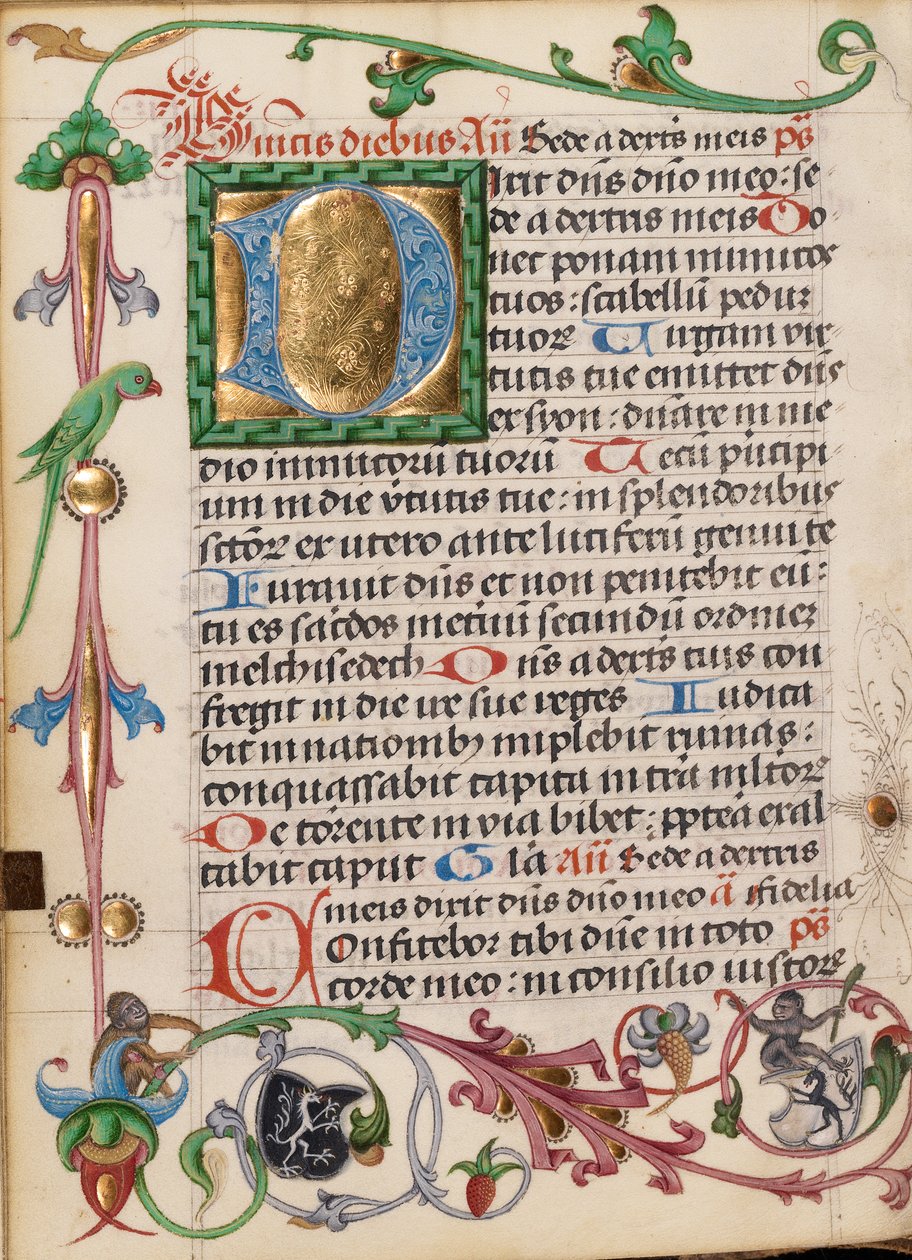 In vicis diebus Añ Sede a dextris meis ps̄
Dixit dñs dño meo: se
de a dextris meis Do
nec ponam inimicos
tuos: scabellū pedūꝫ
tuoꝝ Uirgam vir
tutis tue emittet dñs
ex syon: dñare in me
dio inimicorū tuorū Tecū pͥncipi
um in die vͥtutis tue: in splendoribus
sctōꝝ ex utero ante luciferū genui te
Iurauit dñs et non penitebit eū:
tu es sac̄dos in et̄nū secundū ordinez
melchisedech Dn̄s a dext͛s tuis con
fregit in die ire sue reges Iudica
bit in nationibꝫ īplebit ruinas:
conquassabit capita in tr̄a mltoꝝ
De torrente in via bibet: ꝓpt̄ea exal
tabit caput Gl̄a Añ Sede a dextris
meis dixit dñs dño meo a͞ Fidelia
Confitebor tibi dñe in toto ps̄
corde meo: in consilio iustoꝝ